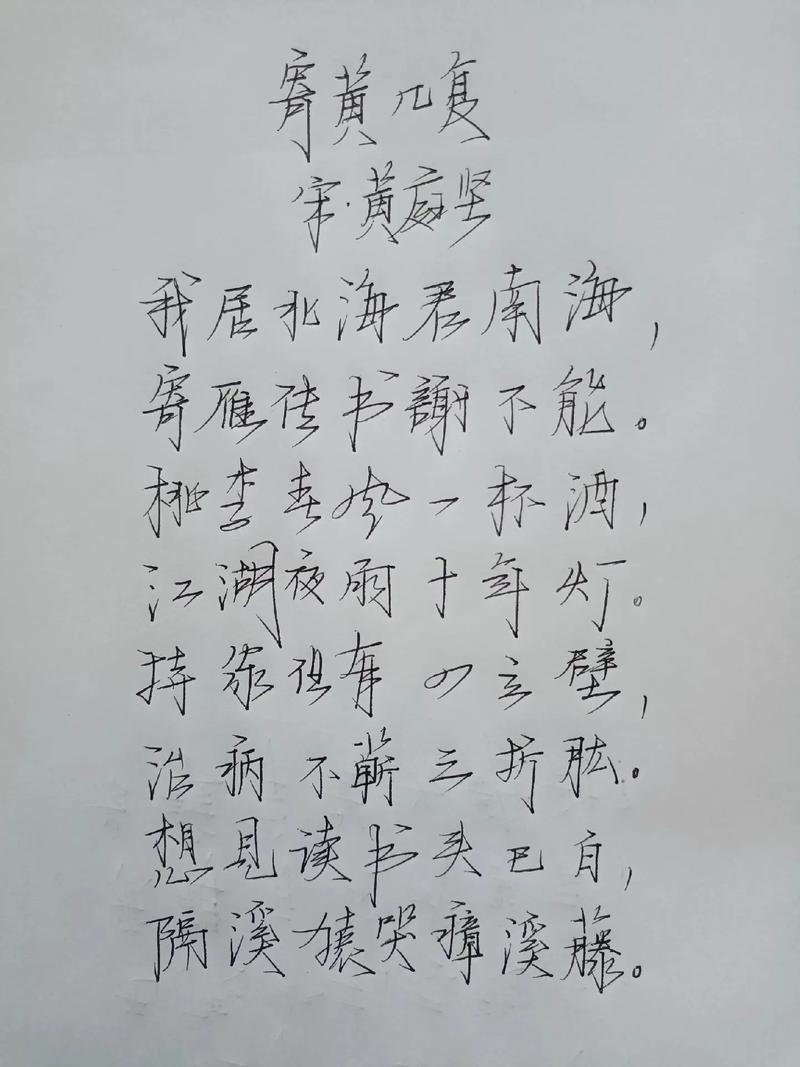 寄黄几复
宋·黄庭坚
我居北海君南海，
寄雁传书謝不能。
桃李春风一杯酒，
江湖夜雨十年灯。
持家但有四立壁，
治病不蕲三折肱。
想見读书头已白，
隔溪猿哭瘴溪藤。